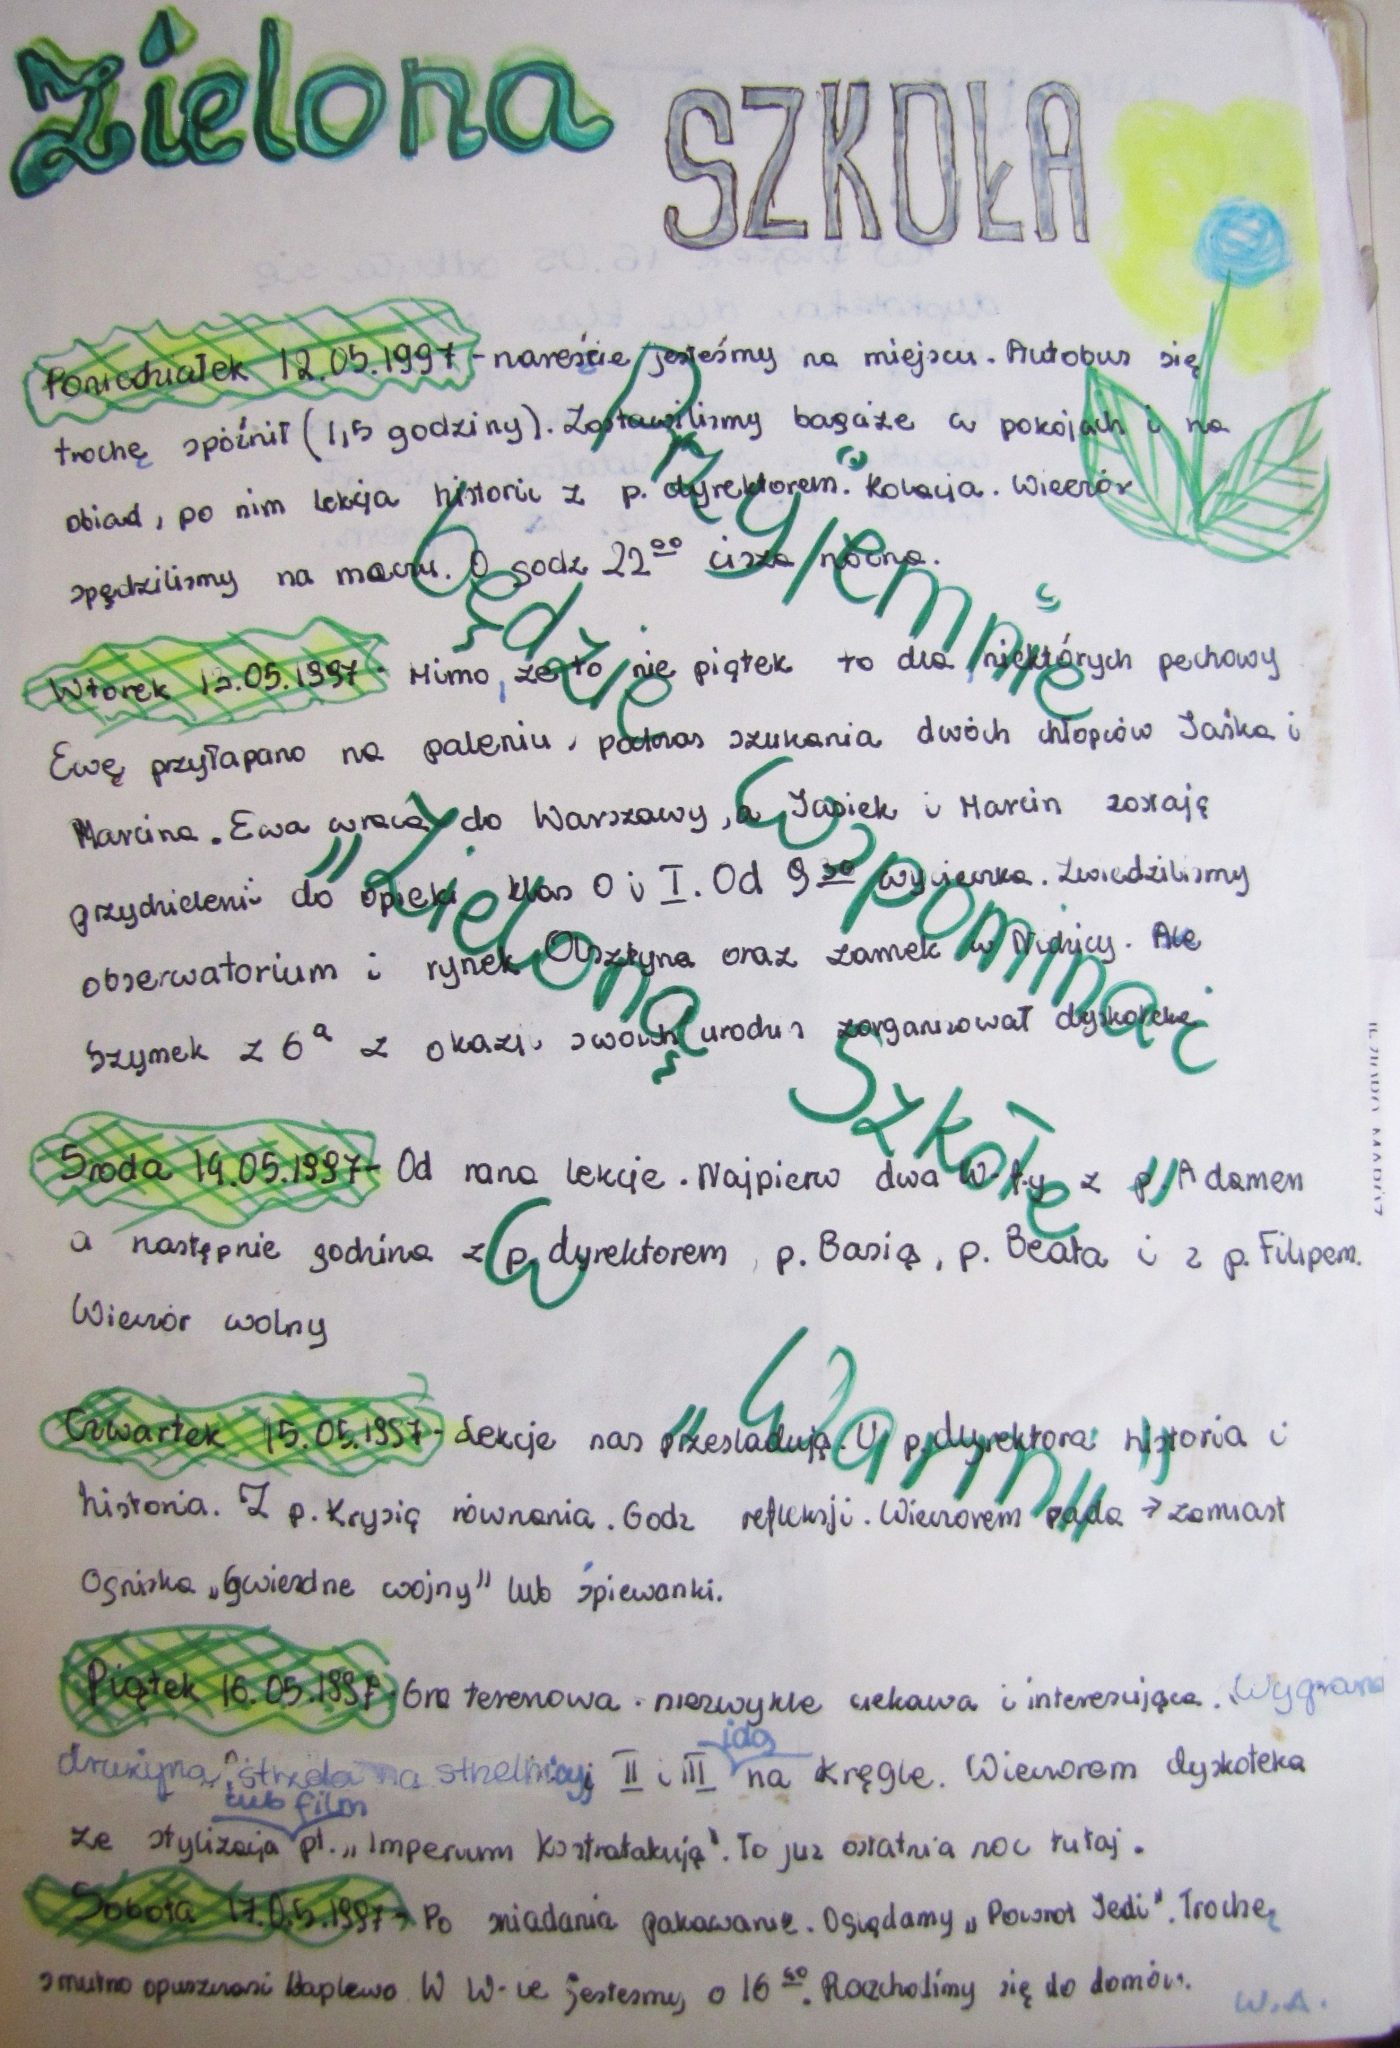 Zielona SZKOŁA
Poniedziałek 12.05.1997 - nareście jesteśmy na miejscu. Autobus się
trochę spóźnił (1,5 godziny). Zostawilismy bagaże w pokojach i na
obiad, po nim lekcja historii z p. dyrektorem. Kolacja. Wieczór
spędzilismy na meczu. O godz 22⁰⁰ cisza nocna.
Wtorek 13.05.1997 - Mimo, że to nie piątek to dla niektórych pechowy
Ewę przyłapano na paleniu, podczas szukania dwóch chłopców Jaśka i
Marcina. Ewa wraca do Warszawy, a Jasiek i Marcin zostają
przydzieleni do opieki klas 0 i I. Od 9³⁰ wycieczka. Zwiedzilismy
obserwatorium i rynek Olsztyna oraz zamek w Nidzicy. Ale
Szymek z 6ᵃ z okazji swoich urodzin zorganizował dyskotekę
Środa 14.05.1997 - Od rana lekcje. Najpierw dwa W-f-y z p. Adamem
a następnie godzina z p. dyrektorem, p. Basią, p. Beatą i z p. Filipem.
Wieczór wolny
Czwartek 15.05.1997 - Lekcje nas przesladują. U p. dyrektora historia i
historia. Z p. Krysią równania. Godz refleksji. Wieczorem pada → zamiast
Ogniska „Gwiezdne wojny" lub śpiewanki.
Piątek 16.05.1997 - Gra terenowa - niezwykle ciekawa i interesująca. Wygrana
drużyna strzela na strzelnicy, II i III idą na kręgle. Wieczorem dyskoteka
lub film
ze stylizacją pt. „Imperium kontratakują". To już ostatnia noc tutaj.
Sobota 17.05.1997 - Po sniadania pakowanie. Oglądamy „Powrót Jedi". Trochę
smutno opuszczać Waplewo. W W-ie jestesmy o 16 . Rozchodimy się do domów.
W.A.
Przyjemnie
będzie
Wspominać
„Zieloną
Szkołę"
w
„Warmii"